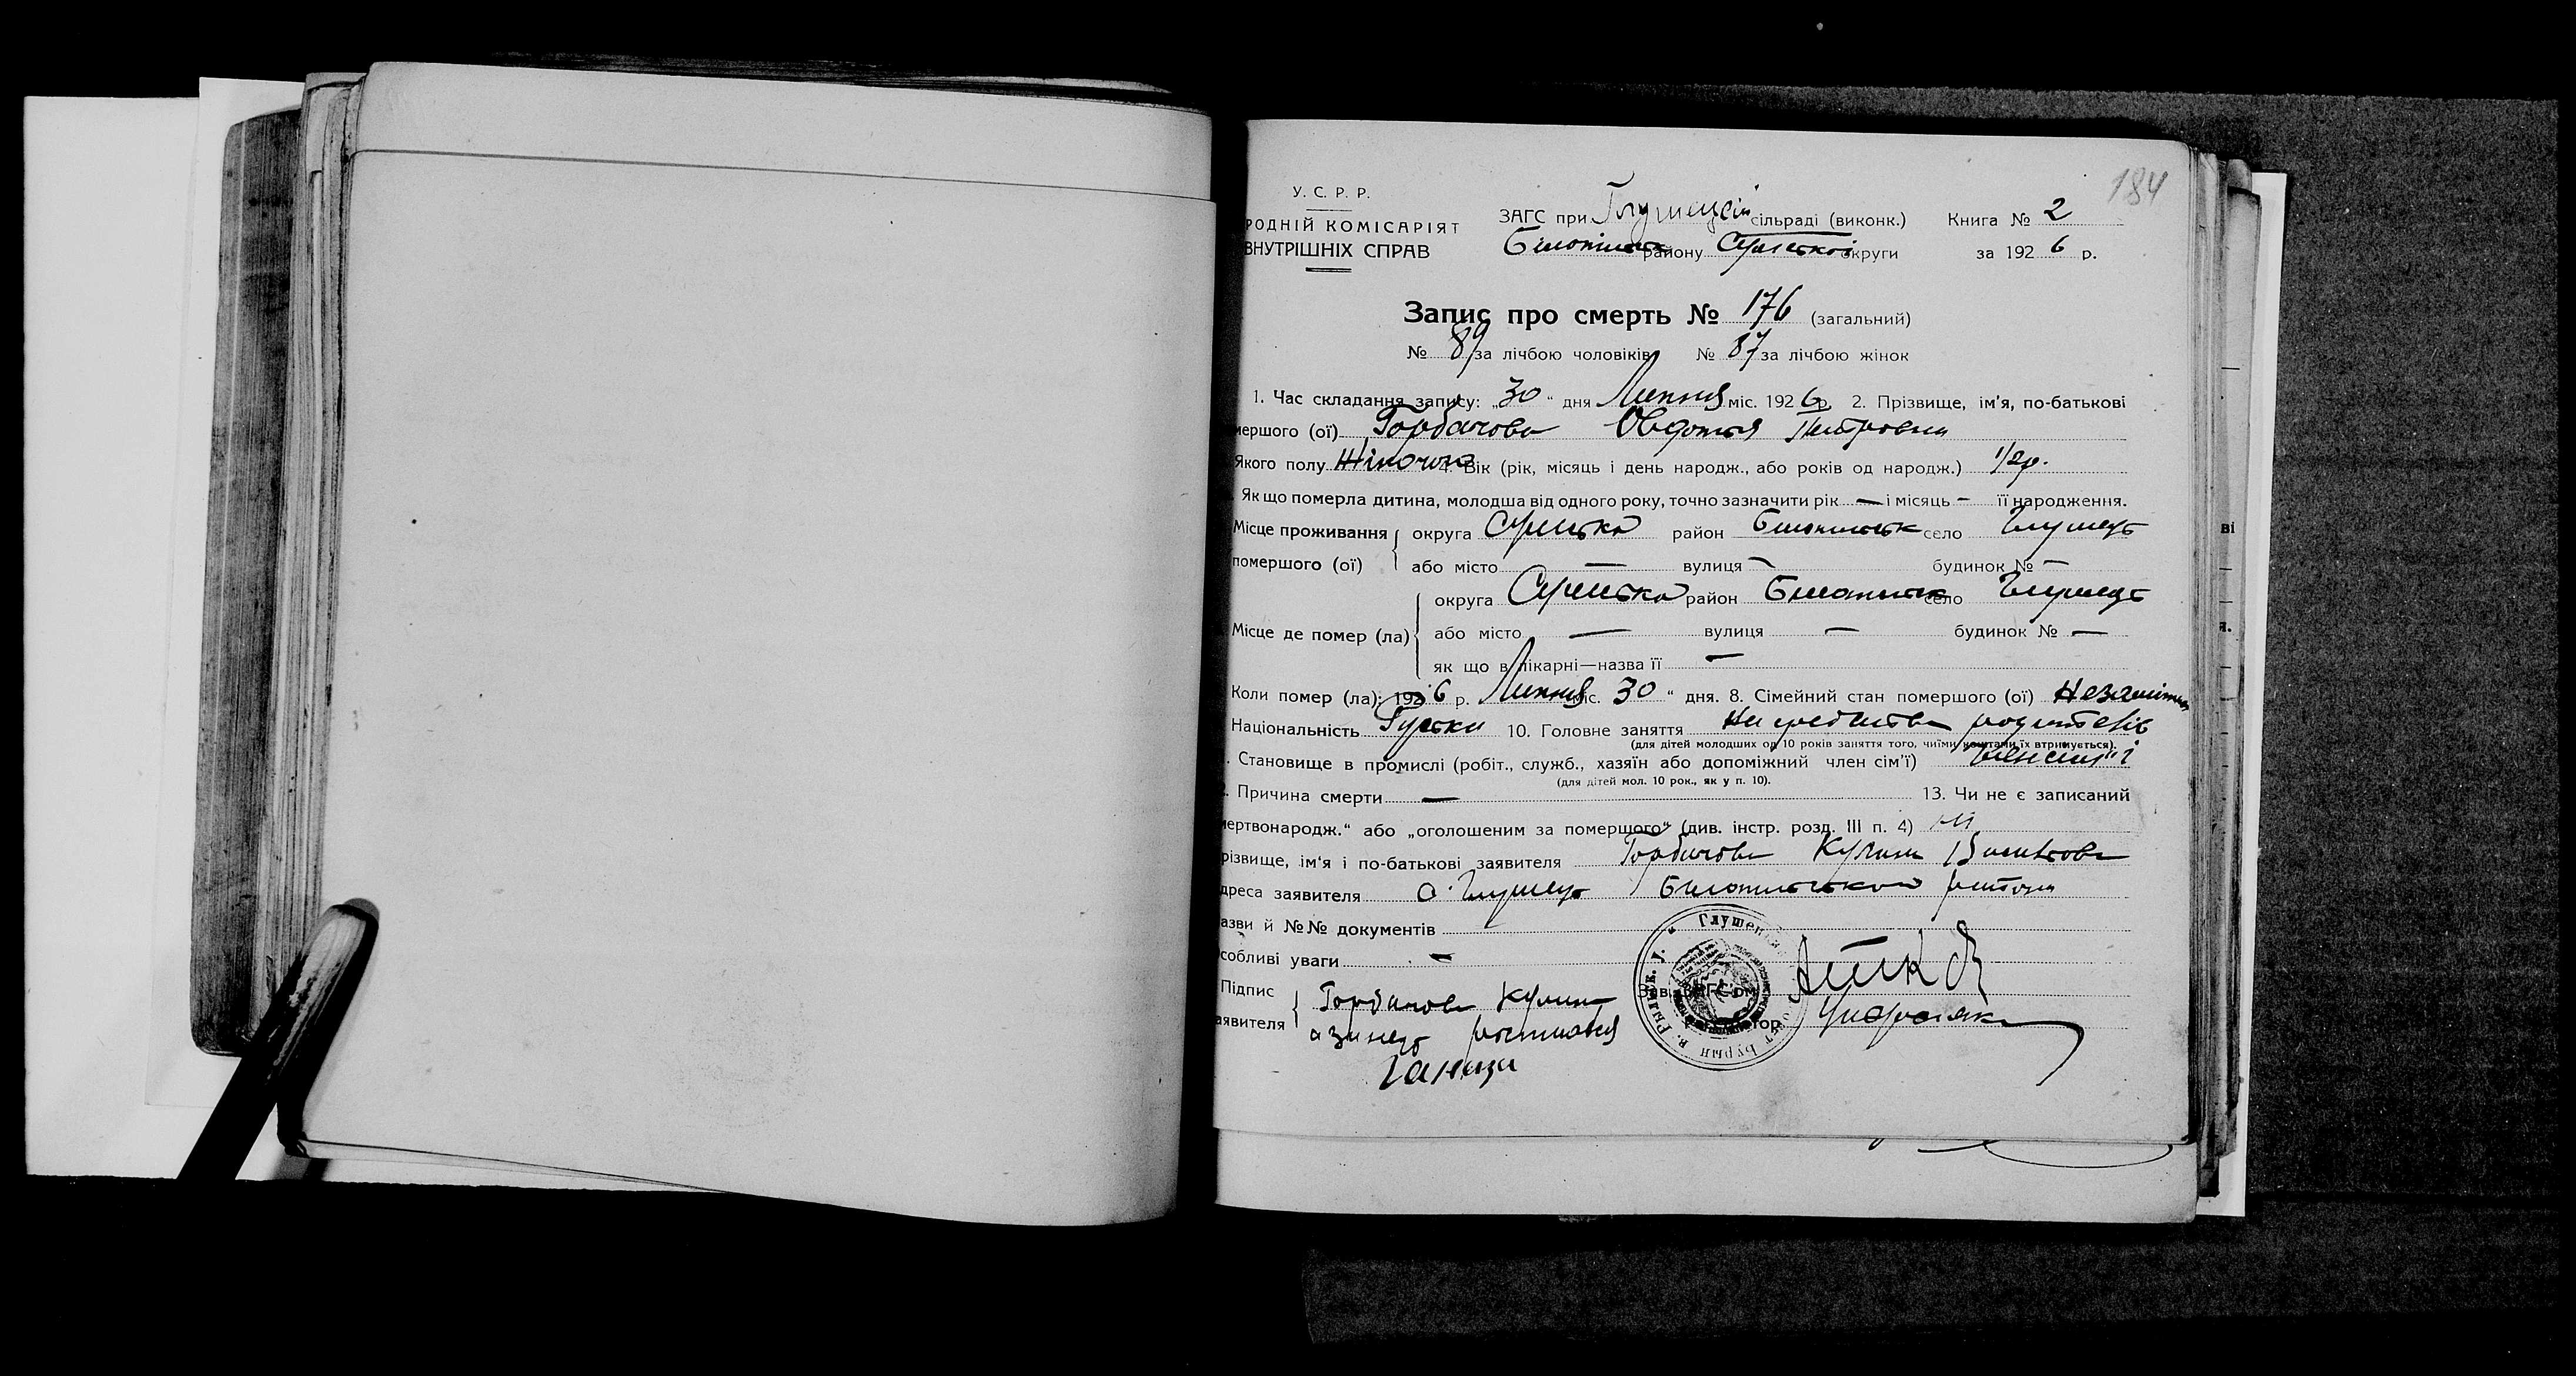 184
У. С. Р. Р.
РОДНІЙ КОМІСАРІЯТ
ВНУТРІШНІХ СПРАВ
ЗАГС при Глушецкій сільраді (виконк.) Книга № 2
Білопільськ району Сумської округи за 1926 р.
Запис про смерть № 176 (загальний)
№ 89 за лічбою чоловіків № 87 за лічбою жінок
1. Час складання запису: „30“ дня Липня міс. 1926 р. 2. Прізвище, ім'я, по-батькові
мершого (ої) Горбачова Овдотья Петровна
Якого полу Жіночого 4. Вік (рік, місяць і день народж., або років од народж.) 1/2 р.
Як що померла дитина, молодша від одного року, точно зазначити рік — і місяць — її народження.
Місце проживання округа Сумська район Білопільськ село Глушець
помершого (ої) або місто — вулиця — будинок № —
округа Сумська район Білопільськ село Глушець
Місце де помер (ла) або місто — вулиця — будинок № —
як що в лікарні—назва її —
Коли помер (ла): 1926 р. Липня міс. 30 “ дня. 8. Сімейний стан помершого (ої) Незаміжня
Національність Руська 10. Головне заняття На средства родителів
(для дітей молодших од 10 років заняття того, чиїми коштами їх втримується).
. Становище в промислі (робіт., служб., хазяїн або допоміжний член сім'ї)
(для дітей мол. 10 рок., як у п. 10).
. Причина смерти — 13. Чи не є записаний
мертвонародж.“ або „оголошеним за помершого“ (див. інстр. розд. III п. 4) ні
різвище, ім'я і по-батькові заявителя Горбачова Кулина
дреса заявителя с. Глушець Білопільського району
азви й №№ документів
собливі уваги —
Підпис Горбачова Кулина
аявителя
Глушец